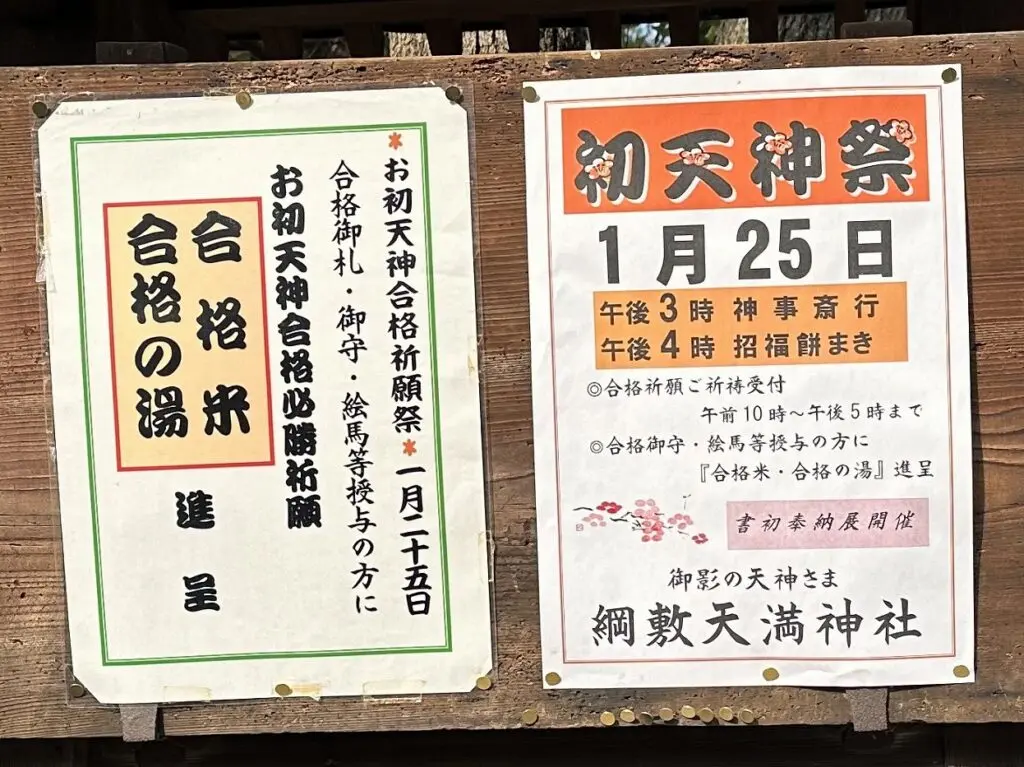 *お初天神合格祈願祭* 一月二十五日
合格御札・御守・絵馬等授与の方に
お初天神合格必勝祈願
合格米
合格の湯
進呈
初天神祭
1月25日
午後3時 神事斎行
午後4時 招福餅まき
◎合格祈願ご祈祷受付
午前10時～午後5時まで
◎合格御守・絵馬等授与の方に
『合格米・合格の湯』進呈
書初奉納展開催
御影の天神さま
綱敷天満神社